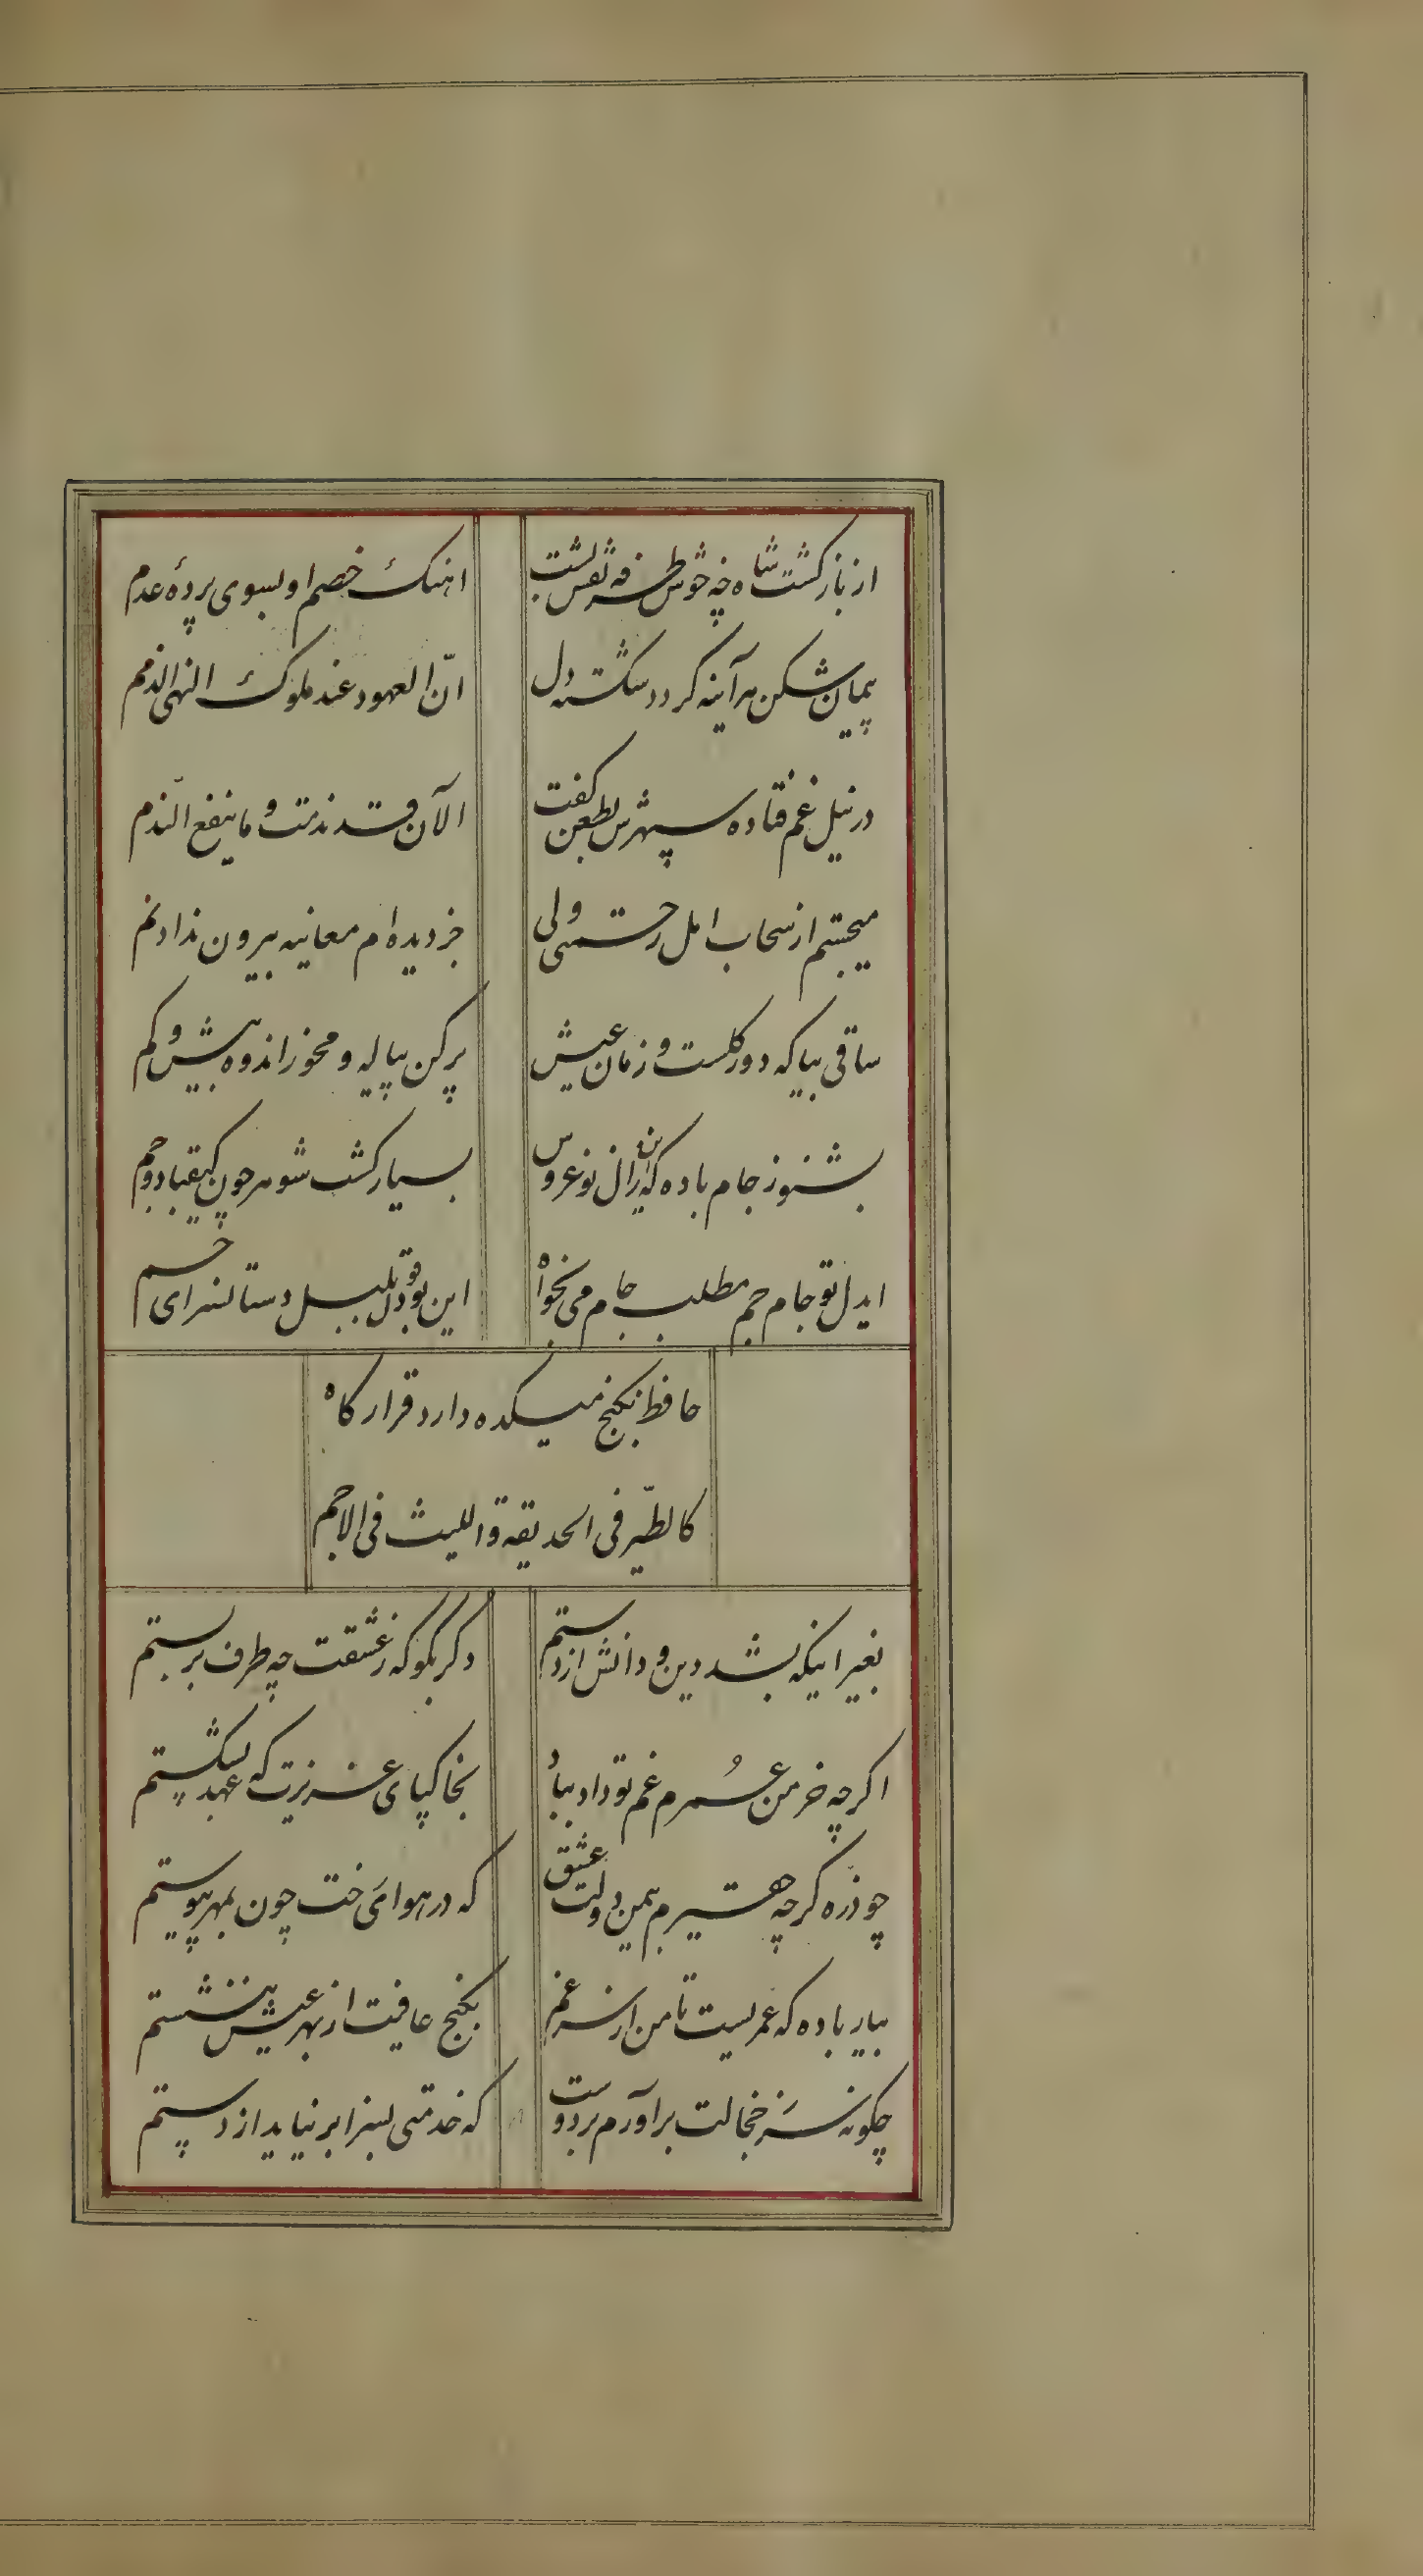 از بازگشت شاه چه خوش طرفه نقش بست
اهنک خصم او بسوی پردهٔ عدم
پیمان شکن هرآینه کردد شکسته دل
انّ العهود عند ملوک النهی الذمم
در نیل غم فتاده سپهرش بطعن کفت
الآن قد ندمت و ما ینفع النّدم
میجستم از سحاب امل رحمتی ولی
جز دیده ام معاینه بیرون نداد نم
ساقی بیا که دور کلست و زمان عیش
پر کن پیاله و مخور اندوه بیش و کم
بشنو ز جام باده که این زال نوعروس
بسیار کشت شوهر چون کیقباد و جم
ایدل تو جام جم مطلب جام می بخواه
این بود قول بلبل دستانسرای جم
حافظ بکنج میکده دارد قرارکاه
کالطّیر فی الحدیقة و اللیث فی الاجم
بغیر اینکه بشد دین و دانش از دستم
دکر بکو که ز عشقت چه طرف بربستم
اکرچه خرمن عُمرم غم تو داد بباد
بخاکپای عزیزت که عهد نشکستم
چو ذرّه کرچه حقیرم بیمن دولت عشق
که در هوای رخت چون بمهر پیوستم
بیار باده که عمریست تا من از سر غم
بکنج عافیت از بهر عیش ننشستم
چکونه سر ز خجالت برآورم بر دوست
که خدمتی بسزا بر نیاید از دستم